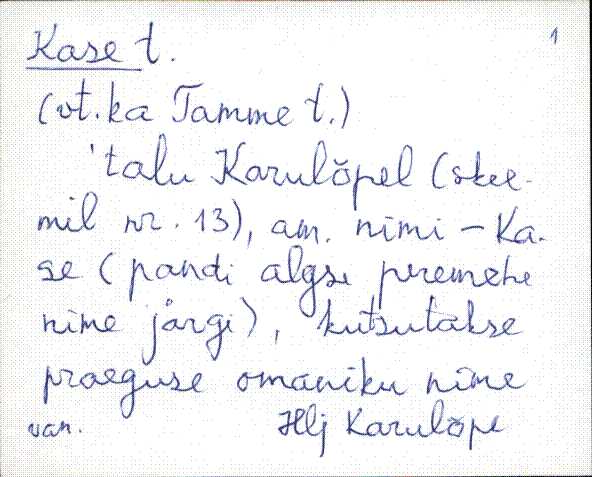 Kase t. 1
(vt. ka Tamme t.)
'talu Karulõpel (skee-
mil nr. 13), am. nimi - Ka-
se (pandi algse peremehe
nime järgi), kutsutakse
praeguse omaniku nime
van. Hlj Karulõpe